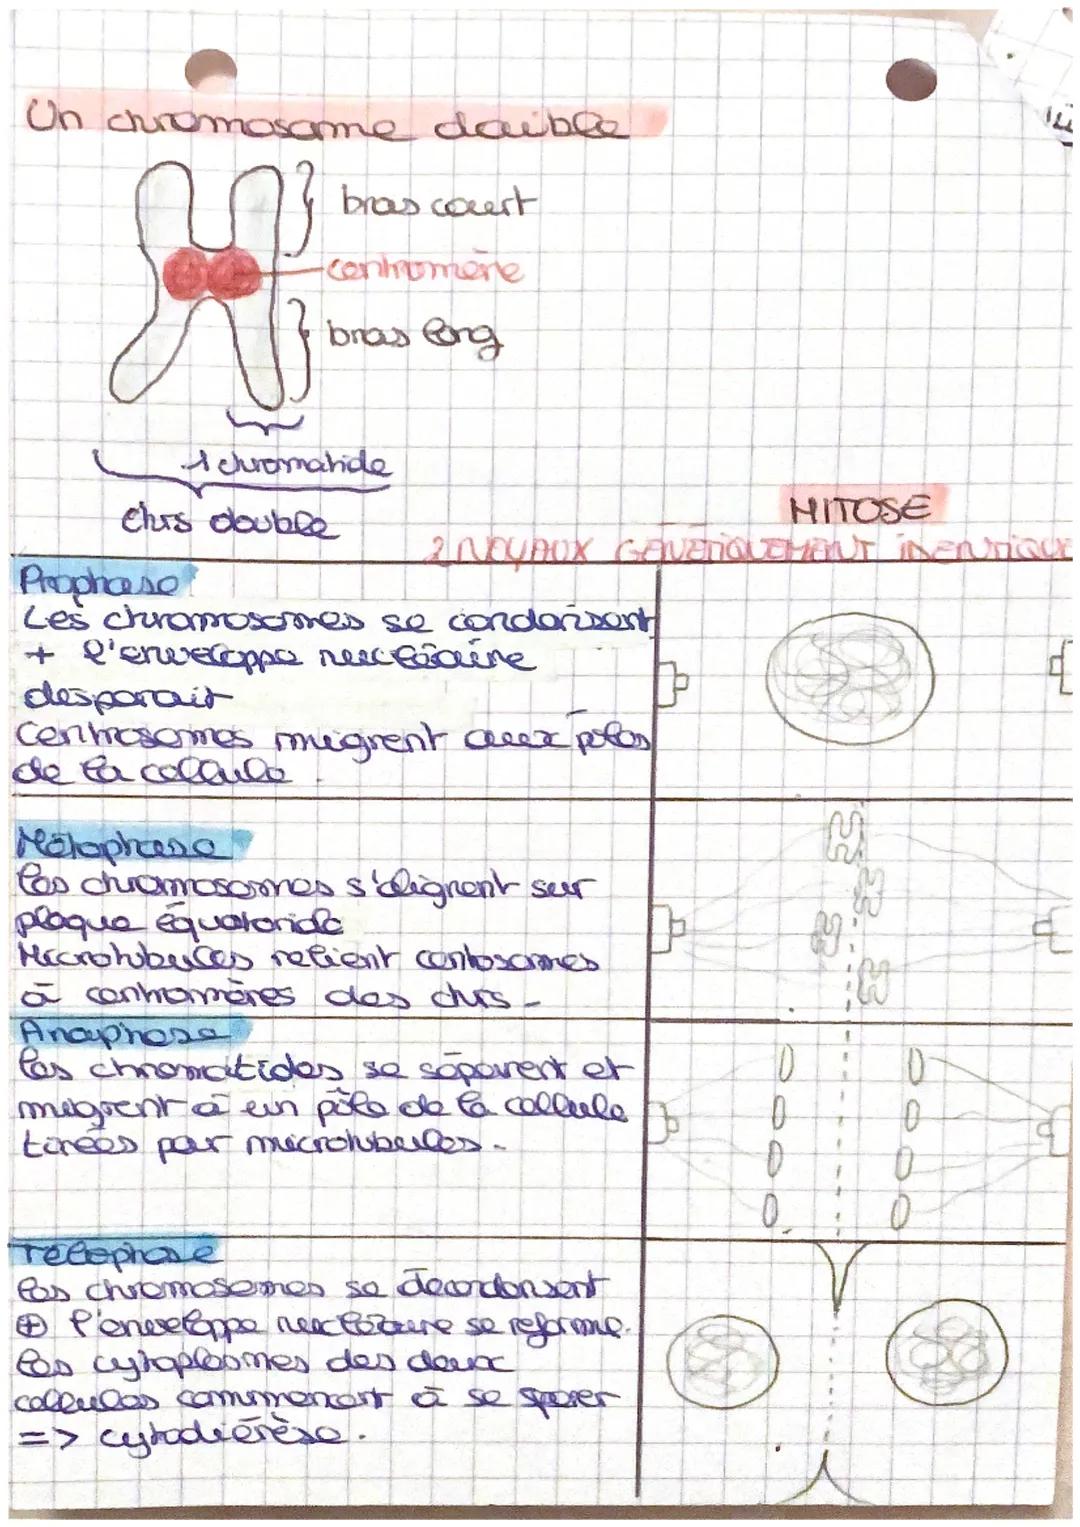 Un chromosome double
bras court
centromère
bras long
1 chromatide
Chrs double
MITOSE
2 NOYAUX GÉNÉTIQUEMENT IDENTIQUE
Prophase
Les chromosomes se condensent
+ l'enveloppe nucléaire
desparait
Centrosomes migrent aux poles
de la cellule.
Métaphase
les chromosomes s'alignent sur
plaque équatoriale
Microtubules relient centosomes
à centromères des chrs.
Anaphase
les chromatides se séparent et
migrent à un pôle de la cellule
tirées par microtubules.
Télophase
les chromosomes se décondensent
⊕ l'enveloppe nucléaire se reforme.
les cytoplasmes des deux
cellules commencent à se sparer
=> cytodiérèse.